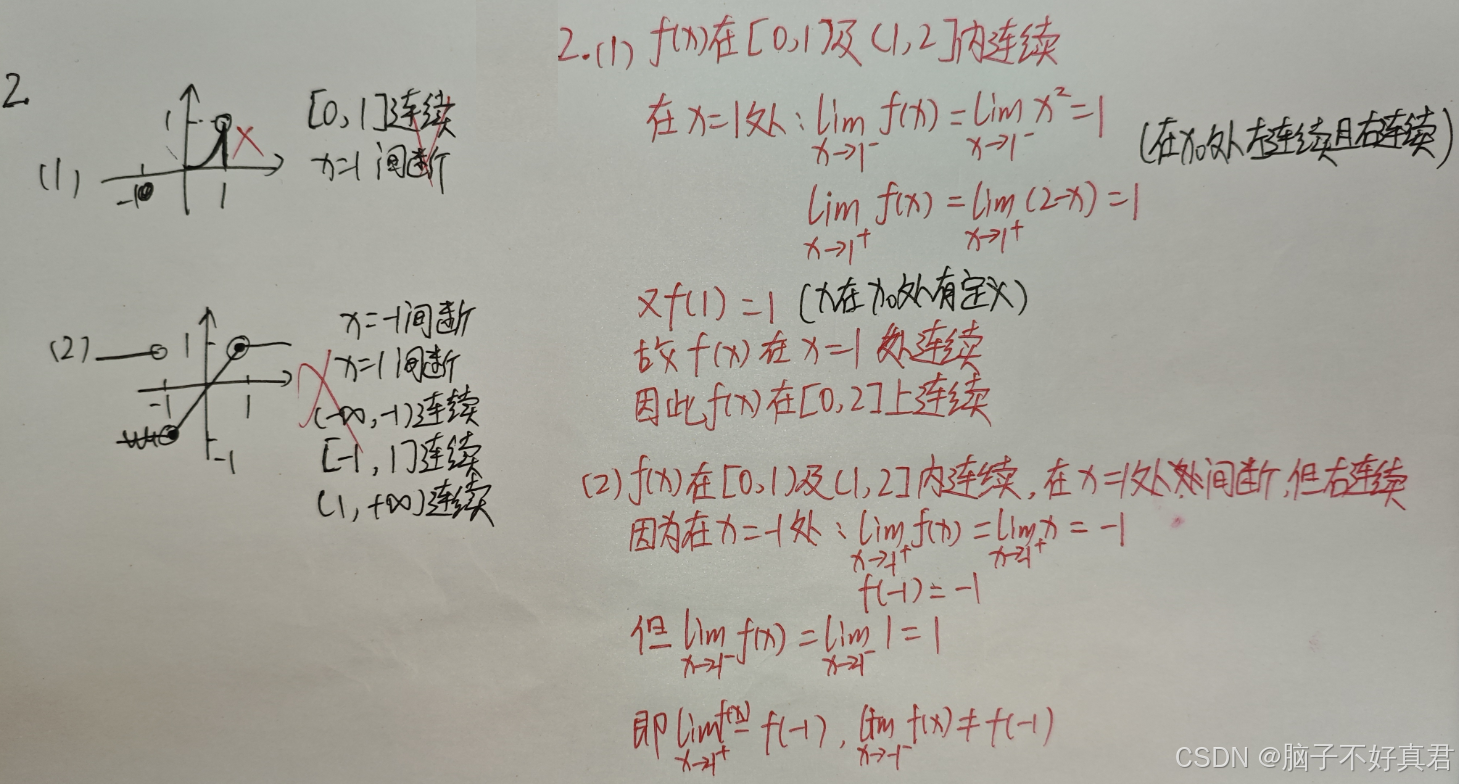 2.
(1)
1
-1
1
[0,1]连续
x=1 间断
(2)
1
-1
1
-1
x=-1间断
x=1间断
(-∞,-1)连续
[-1,1]连续
(1,+∞)连续
2.(1) f(x)在[0,1]及(1,2]内连续
在x=1处:lim f(x)=lim x²=1
x→1⁻ x→1⁻
(在x₀处左连续且右连续)
lim f(x)=lim (2-x)=1
x→1⁺ x→1⁺
又f(1)=1 (x在x₀处有定义)
故f(x)在x=1处连续
因此f(x)在[0,2]上连续
(2)f(x)在[0,1)及(1,2]内连续,在x=1处间断,但右连续
因为在x=-1处:lim f(x)=lim x=-1
x→-1⁺ x→-1⁺
f(-1)=-1
但 lim f(x)=lim 1=1
x→-1⁻ x→-1⁻
即 lim f(x)=f(-1),lim f(x)≠f(-1)
x→-1⁺ x→-1⁻
CSDN @脑子不好真君